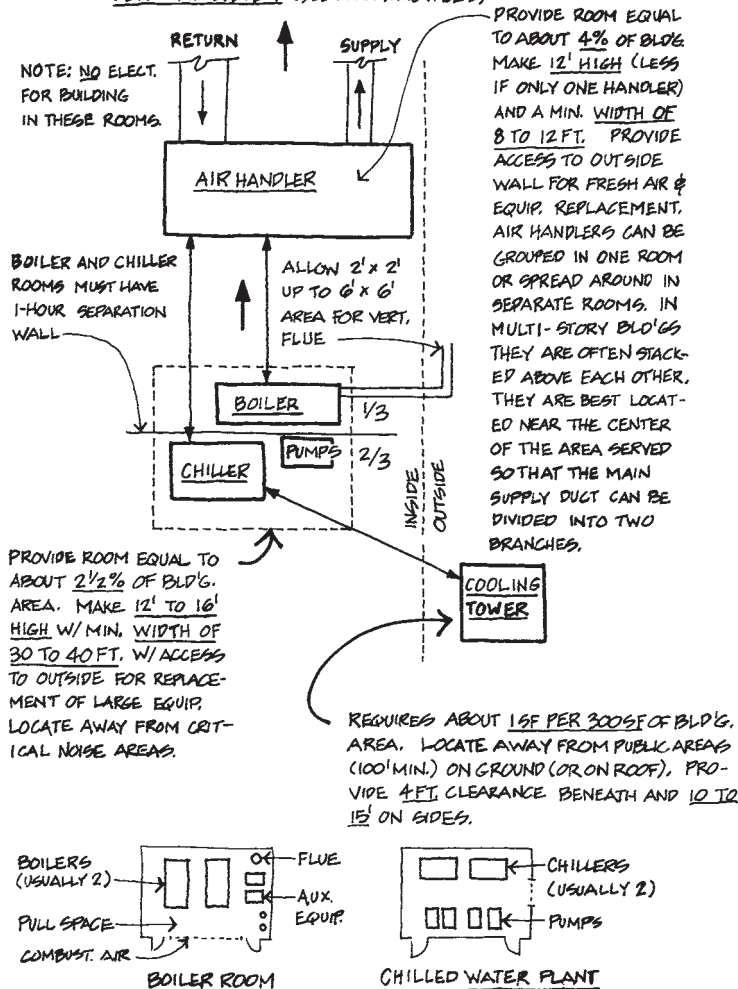 PROVIDE ROOM EQUAL
TO ABOUT 4% OF BLDG.
MAKE 12' HIGH (LESS
IF ONLY ONE HANDLER)
AND A MIN. WIDTH OF
8 TO 12 FT. PROVIDE
ACCESS TO OUTSIDE
WALL FOR FRESH AIR &
EQUIP. REPLACEMENT.
AIR HANDLERS CAN BE
GROUPED IN ONE ROOM
OR SPREAD AROUND IN
SEPARATE ROOMS. IN
MULTI-STORY BLD'GS
THEY ARE OFTEN STACK-
ED ABOVE EACH OTHER.
THEY ARE BEST LOCAT-
ED NEAR THE CENTER
OF THE AREA SERVED
SO THAT THE MAIN
SUPPLY DUCT CAN BE
DIVIDED INTO TWO
BRANCHES.
RETURN
SUPPLY
NOTE: NO ELECT.
FOR BUILDING
IN THESE ROOMS.
AIR HANDLER
BOILER AND CHILLER
ROOMS MUST HAVE
1-HOUR SEPARATION
WALL
ALLOW 2' X 2'
UP TO 6' X 6'
AREA FOR VERT.
FLUE
BOILER
1/3
PUMPS
2/3
CHILLER
INSIDE
OUTSIDE
COOLING
TOWER
PROVIDE ROOM EQUAL TO
ABOUT 2 1/2% OF BLD'G.
AREA. MAKE 12' TO 16'
HIGH W/ MIN. WIDTH OF
30 TO 40 FT. W/ ACCESS
TO OUTSIDE FOR REPLACE-
MENT OF LARGE EQUIP.
LOCATE AWAY FROM CRIT-
ICAL NOISE AREAS.
REQUIRES ABOUT 1 SF PER 300 SF OF BLD'G.
AREA. LOCATE AWAY FROM PUBLIC AREAS
(100' MIN.) ON GROUND (OR ON ROOF). PRO-
VIDE 4 FT. CLEARANCE BENEATH AND 10 TO
15' ON SIDES.
BOILERS
(USUALLY 2)
PULL SPACE
COMBUST. AIR
FLUE
AUX.
EQUIP.
BOILER ROOM
CHILLERS
(USUALLY 2)
PUMPS
CHILLED WATER PLANT